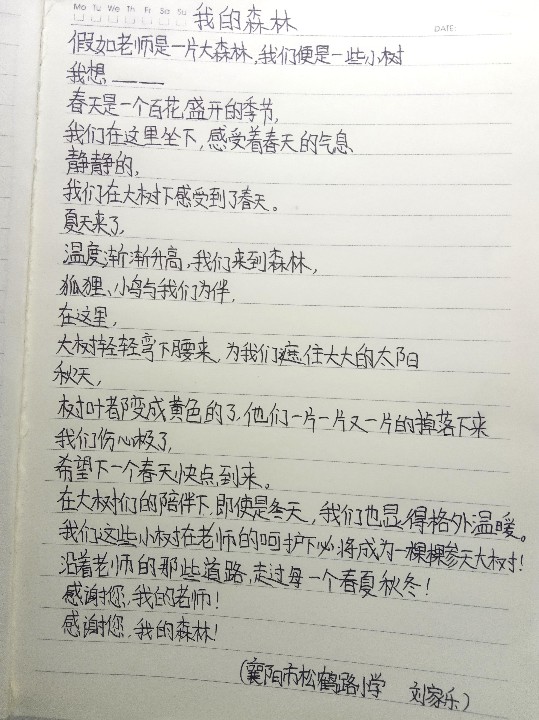 Mo Tu We Th Fr Sa Su
我的森林
DATE:
假如老师是一片大森林,我们便是一些小树
我想———
春天是一个百花盛开的季节,
我们在这里坐下,感受着春天的气息
静静的,
我们在大树下感受到了春天。
夏天来了,
温度渐渐升高,我们来到森林,
狐狸、小鸟与我们为伴,
在这里,
大树轻轻弯下腰来,为我们遮住大大的太阳
秋天,
树叶都变成黄色的了,他们一片一片又一片的掉落下来
我们伤心极了,
希望下一个春天快点到来。
在大树们的陪伴下,即使是冬天,我们也显得格外温暖。
我们这些小树在老师的呵护下必将成为一棵棵参天大树!
沿着老师的那些道路,走过每一个春夏秋冬!
感谢您,我的老师!
感谢您,我的森林!
(襄阳市松鹤路小学 刘家乐)